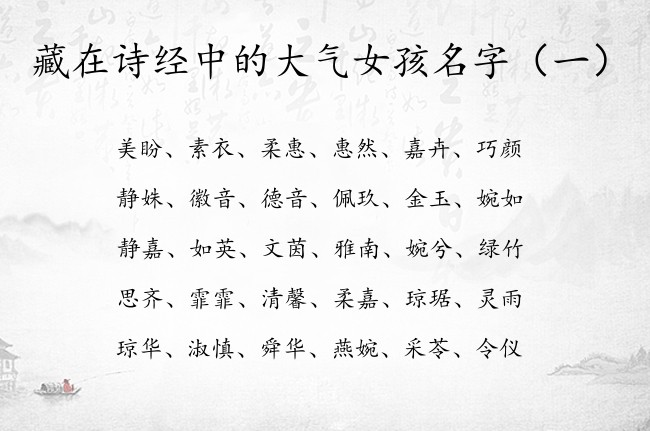 藏在诗经中的大气女孩名字（一）
美盼、素衣、柔惠、惠然、嘉卉、巧颜
静姝、徽音、德音、佩玖、金玉、婉如
静嘉、如英、文茵、雅南、婉兮、绿竹
思齐、霏霏、清馨、柔嘉、琼琚、灵雨
琼华、淑慎、舜华、燕婉、采苓、令仪